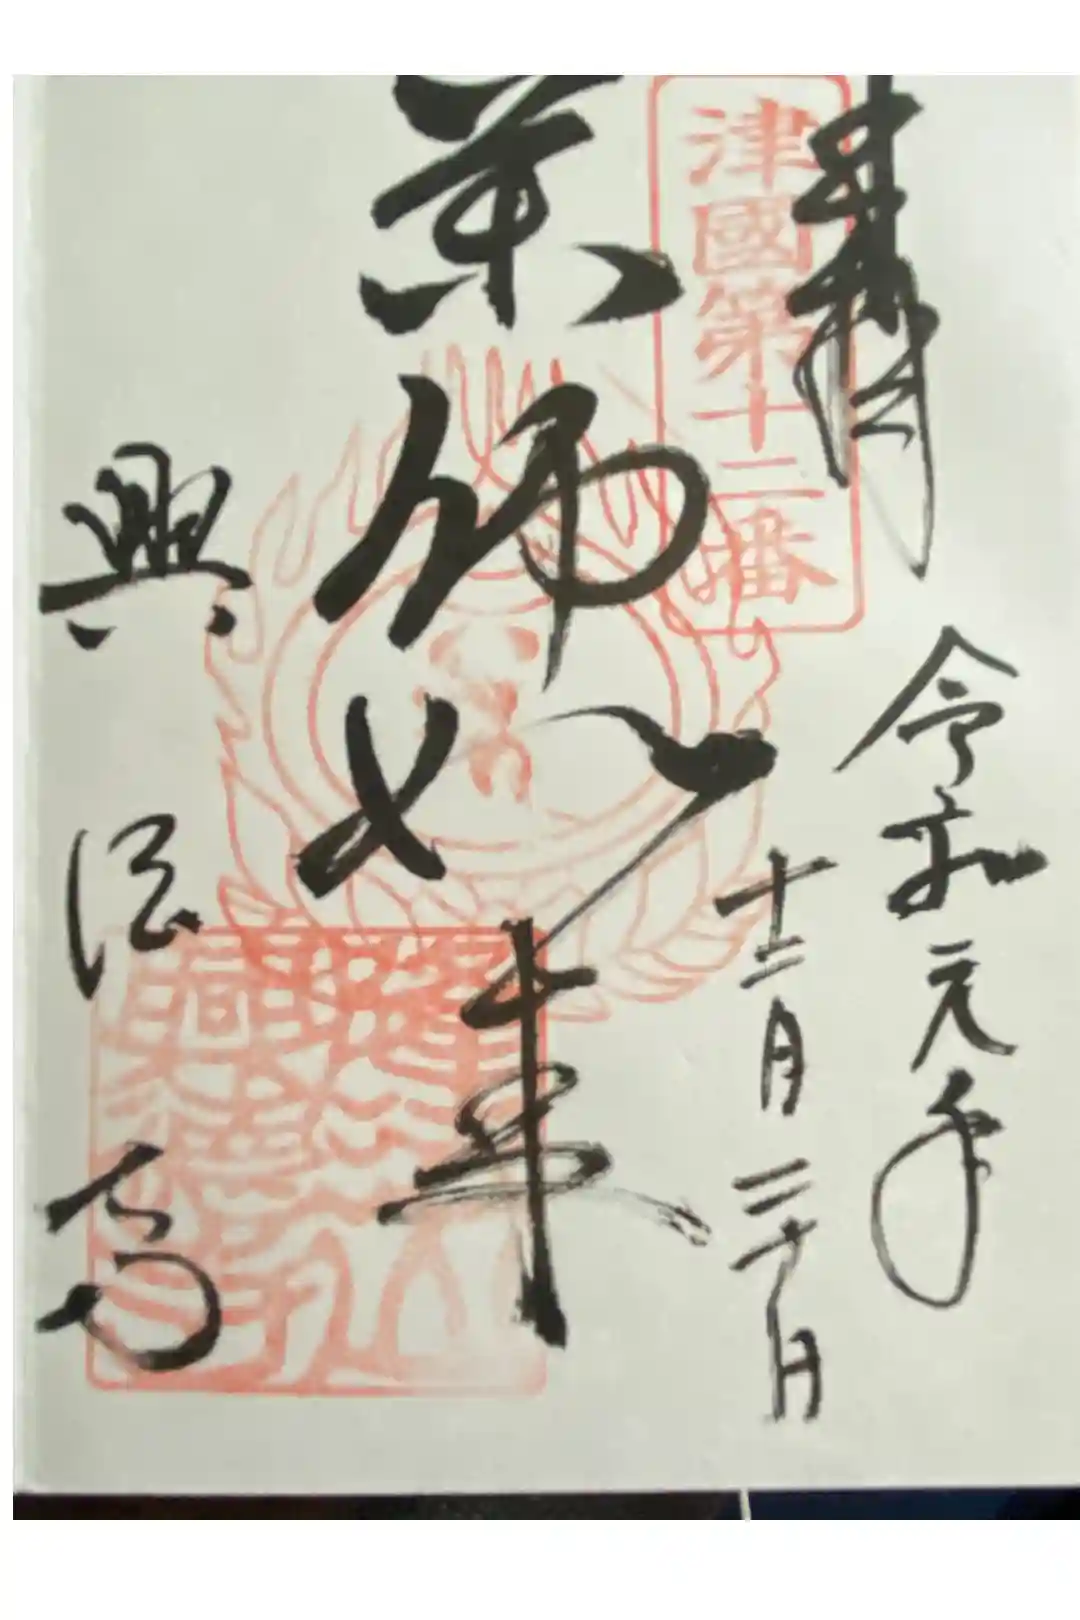 奉拝
令和元年
十二月三十日
津國第十二番
薬師如来
興徳寺